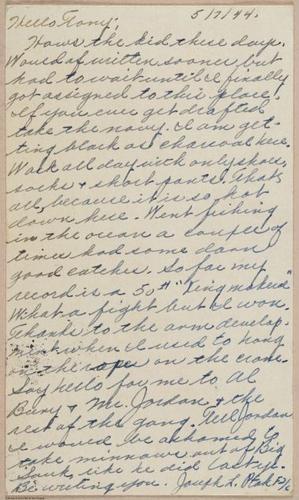 5/7/44.
Hello Tony;
Hows the kid these days.
Would of written sooner but
had to wait until I finally
got assigned to this place.
If you ever get drafted
take the navy. I am get-
ting black as charcoal here.
Work all day with only shoes,
socks & short pants. Thats
all, because it is so hot
down here. Went fishing
in the ocean a couple of
times had some darn
good catches. So far my
record is a 50# "King makeral"
What a fight but I won.
Thanks to the arm develop-
ment when I used to hang
on the ropes on the crane.
Say hello for me to Al
& Mr. Jordan & the
rest of the gang. Tell Jordan
I would be ashamed to
take minnows out of Big
like he did last yr.
Be writing you. Joseph L.